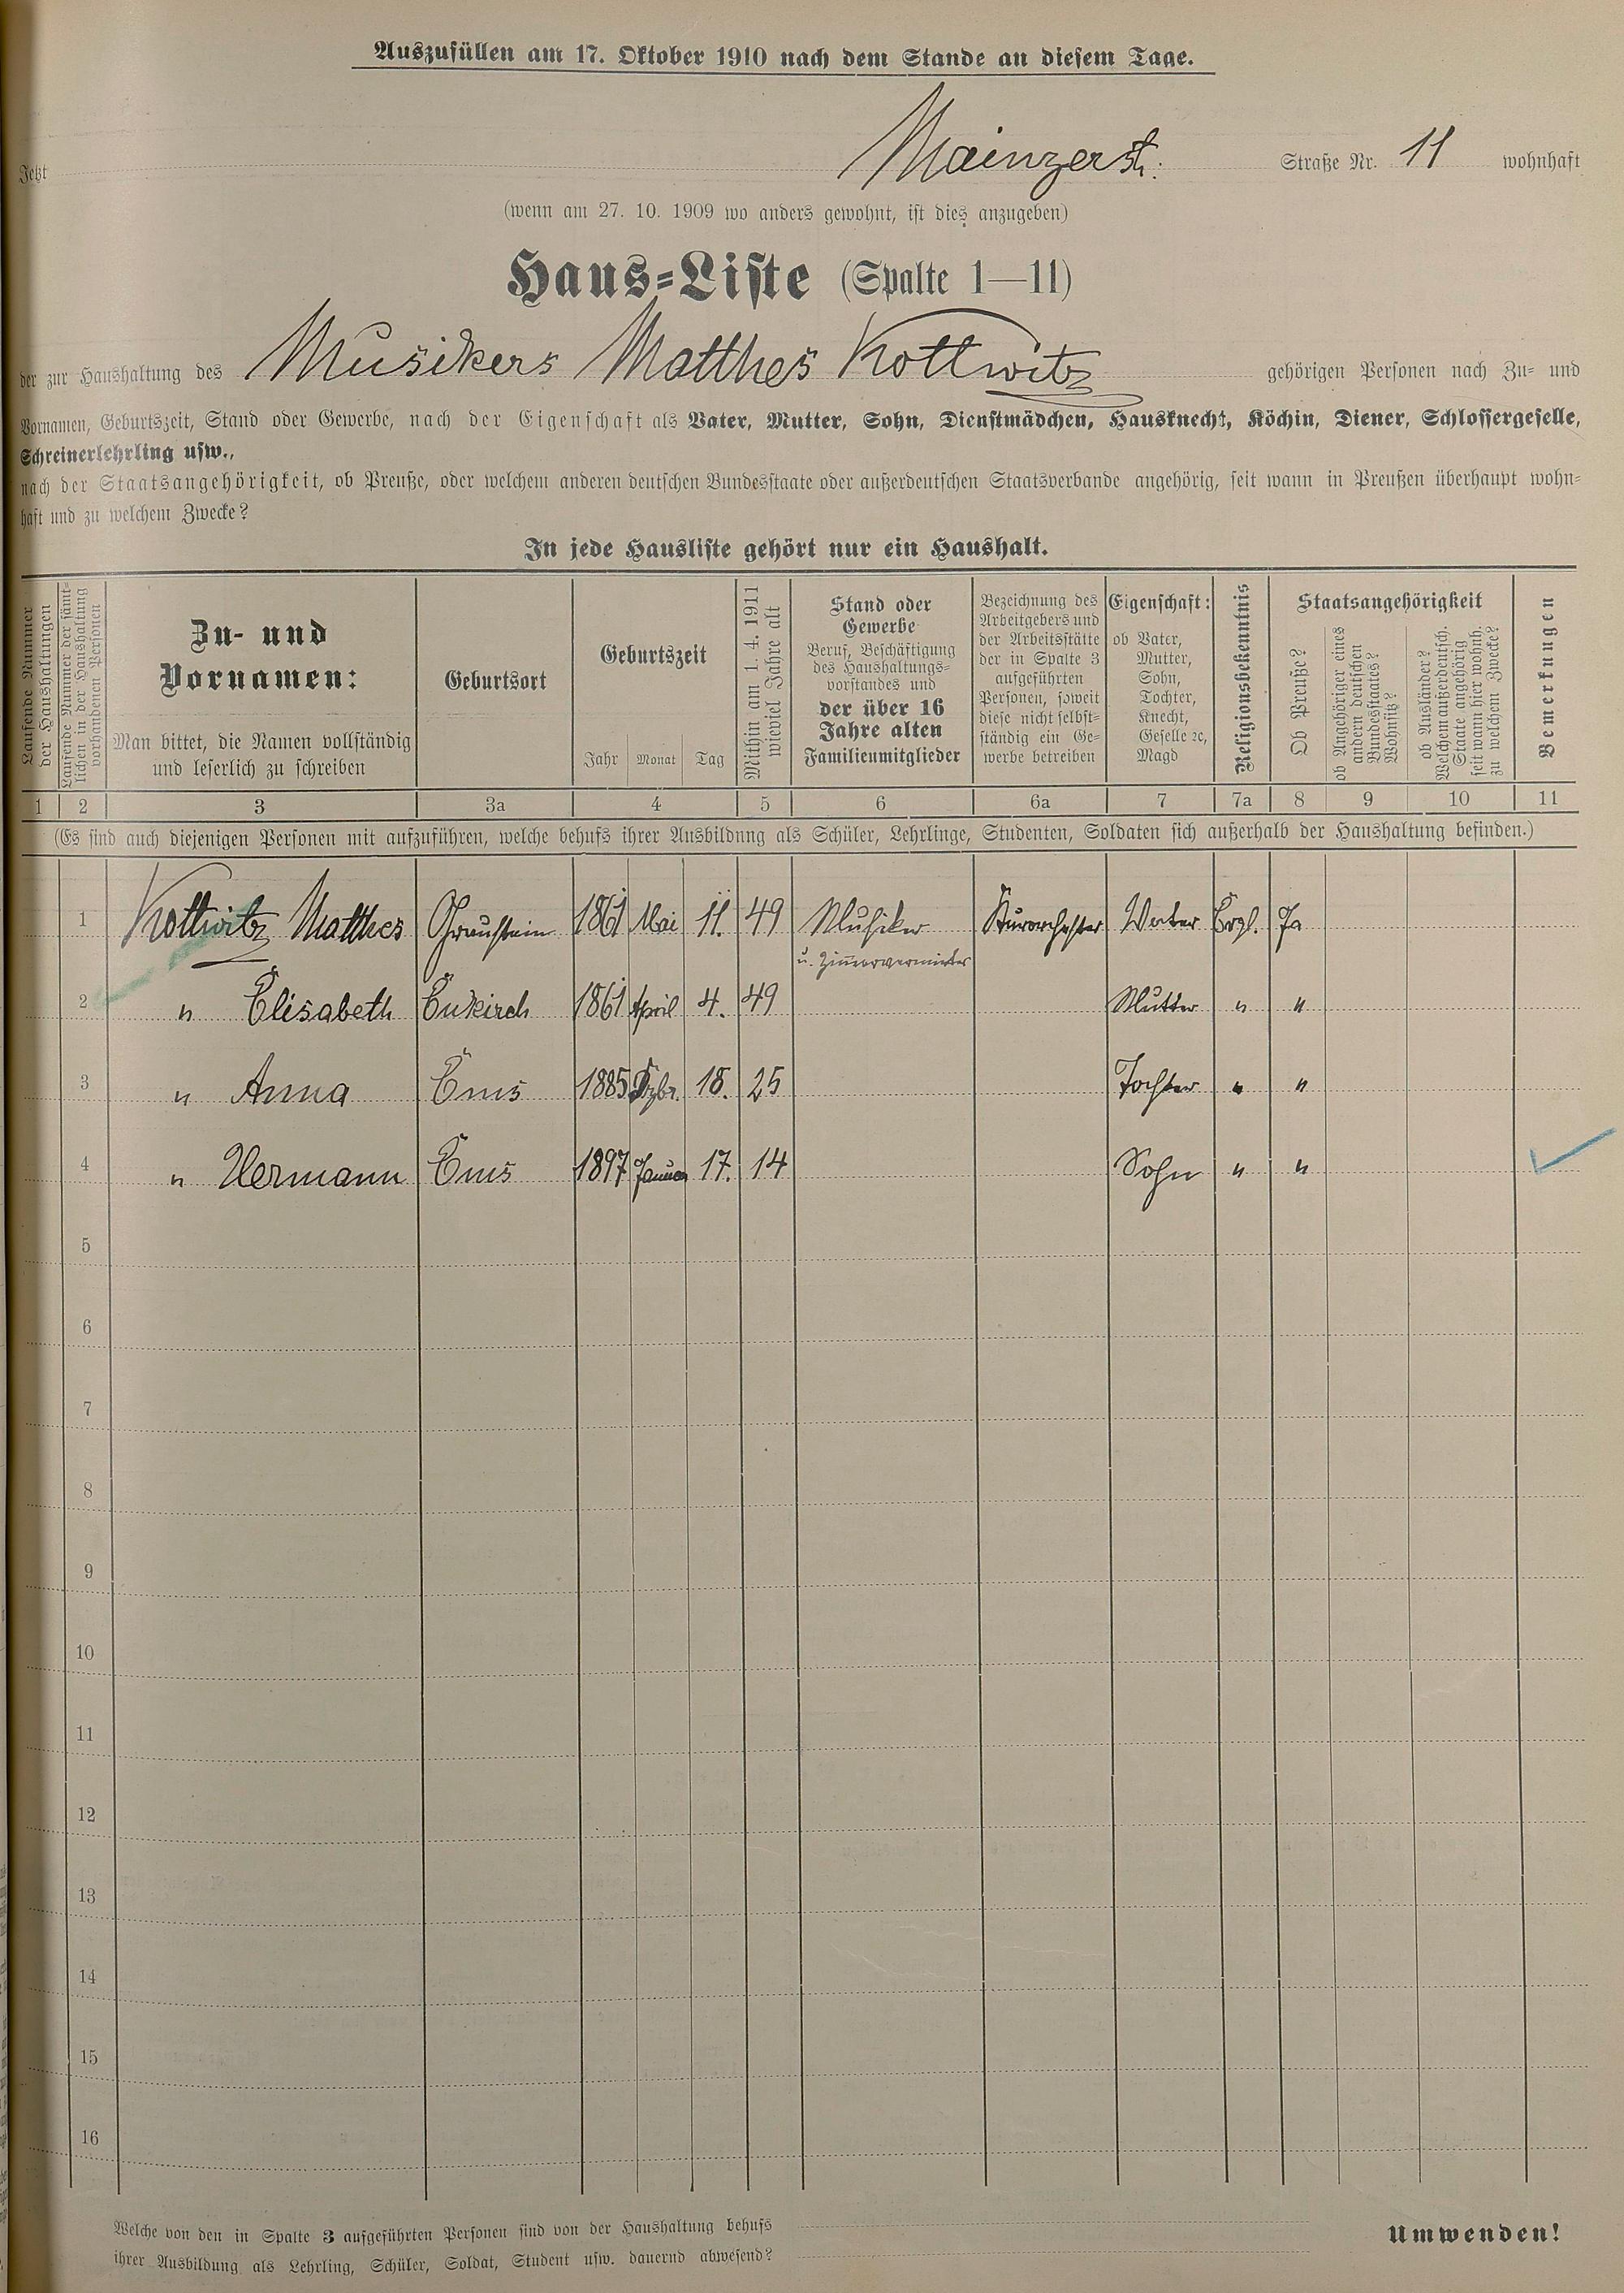 Auszufüllen am 17. Oktober 1910 nach dem Stande an diesem Tage.
Jetzt Mainzerstr. Straße Nr. 11 wohnhaft
(wenn am 27. 10. 1909 wo anders gewohnt, ist dies anzugeben)
Haus-Liste (Spalte 1—11)
der zur Haushaltung des Musikers Matthes Kottwitz gehörigen Personen nach Zu- und
Vornamen, Geburtszeit, Stand oder Gewerbe, nach der Eigenschaft als Vater, Mutter, Sohn, Dienstmädchen, Hausknecht, Köchin, Diener, Schlossergeselle,
Schreinerlehrling usw.,
nach der Staatsangehörigkeit, ob Preuße, oder welchem anderen deutschen Bundesstaate oder außerdeutschen Staatsverbande angehörig, seit wann in Preußen überhaupt wohn-
haft und zu welchem Zwecke?
In jede Hausliste gehört nur ein Haushalt.
Laufende Nummer
der Haushaltungen
Laufende Nummer der sämt-
lichen in der Haushaltung
vorhandenen Personen
Zu- und
Vornamen:
Man bittet, die Namen vollständig
und leserlich zu schreiben
Geburtsort
Geburtszeit
Jahr Monat Tag
Mithin am 1. 4. 1911
wieviel Jahre alt
Stand oder
Gewerbe
Beruf, Beschäftigung
des Haushaltungs-
vorstandes und
der über 16
Jahre alten
Familienmitglieder
Bezeichnung des
Arbeitgebers und
der Arbeitsstätte
der in Spalte 3
aufgeführten
Personen, soweit
diese nicht selbst-
ständig ein Ge-
werbe betreiben
Eigenschaft:
ob Vater,
Mutter,
Sohn,
Tochter,
Knecht,
Geselle ꝛc,
Magd
Religionsbekenntnis
Staatsangehörigkeit
Ob Preuße?
ob Angehöriger eines
andern deutschen
Bundesstaates?
Wohnsitz?
ob Ausländer?
Welchem außerdeutsch.
Staate angehörig
seit wann hier wohnh.
zu welchem Zwecke?
Bemerkungen
1 2 3 3a 4 5 6 6a 7 7a 8 9 10 11
(Es sind auch diejenigen Personen mit aufzuführen, welche behufs ihrer Ausbildung als Schüler, Lehrlinge, Studenten, Soldaten sich außerhalb der Haushaltung befinden.)
1 Kottwitz Matthes 1861 Mai 11. 49 Musiker Kurorchester Vater Evgl. Ja
u. Zimmervermieter
2 " Elisabeth Enkirch 1861 April 4. 49 Mutter " "
3 " Anna Ems 1885 Dzbr. 18. 25 Tochter " "
4 " Hermann Ems 1897 Januar 17. 14 Sohn " "
5
6
7
8
9
10
11
12
13
14
15
16
Welche von den in Spalte 3 aufgeführten Personen sind von der Haushaltung behufs
ihrer Ausbildung als Lehrling, Schüler, Soldat, Student usw. dauernd abwesend?
Umwenden!